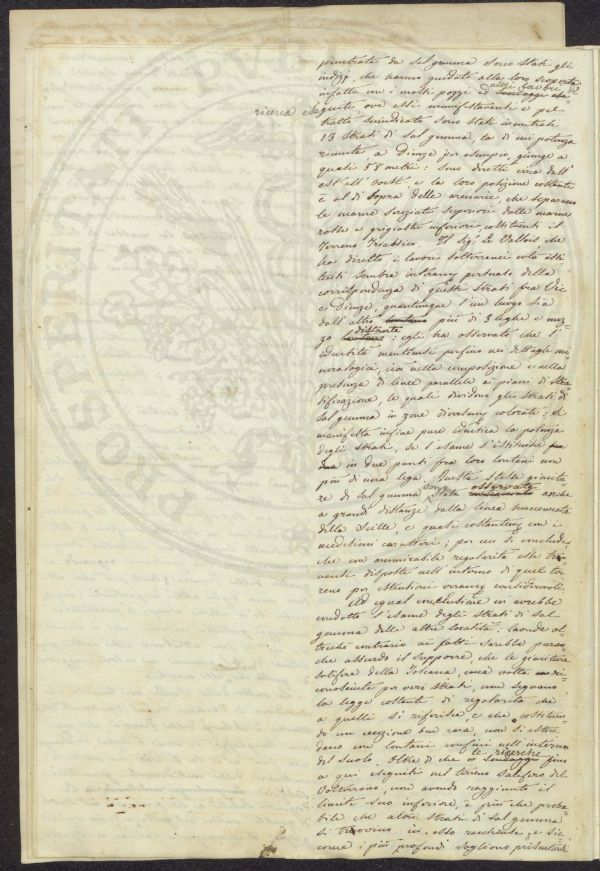 penetrata da sal gemma sono stati gli
indizj, che hanno guidato alla loro scoperta
altri lavori di
infatti con i molti pozzi ed
ricerca
guito ove essi manifestaronsi e pel
tratto suindicato sono stati incontrati
13 strati di sal gemma, la di cui potenza
riunita, a Dieuze per esempio, giunge a
quasi 58 metri: sono diretti circa dall'
est all' ovest, e la loro posizione costante
è al di sopra delle arenarie, che separano
le marne screziate superiori dalle marne
rosse e grigiastre inferiori costituenti il
Terreno Triassico. Il Sigr Le Vallois che
ha diretto i lavori sotterranei colà esi-
stenti sembra interamte persuaso della
corrispondenza di questi strati fra Vic
e Dieuze, quantunque l'un luogo sia
dall' altro più di 3 leghe e mez-
distante
zo : egli ha osservato che l'
identità mantiensi perfino nei dettagli mi-
neralogici, cioè nella composizione e nella
presenza di linee parallele ai piani di stra-
tificazione, le quali dividono gli strati di
sal gemma in zone diversamte colorate: si
manifesta infine pure identica la potenza
degli strati, se l'esame s'istituisce
in due punti fra loro lontani non
più di una lega. Queste stesse giacitu-
re di sal gemma sono state osservate anche
a grandi distanze dalla linea summenzionata
della Seille, e quasi costantemte con i
medesimi caratteri; per cui si conclude,
che con ammirabile regolarità esse tro-
vansi disposte nell' interno di quel ter-
reno per estensioni oramai considerevoli.
Ad egual conclusione ci avrebbe
condotto l'esame degli strati di sal
gemma delle altre località: laonde ol-
treché contrario ai fatti sarebbe puran-
che assurdo il supporre, che le giaciture
salifere della Toscana, una volta
riconosciute per veri strati, non seguano
la legge costante di regolarità che
a quelli si riferisce, e che costituen-
do un eccezione ben rara, non si esten-
dano con lontani confini nell' interno
del suolo. Oltre di che le ricerche fino
a qui eseguite nel terreno salifero del
Volterrano, non avendo raggiunto il
limite suo inferiore, è più che proba-
bile che altri strati di sal gemma
si trovino in esso racchiusi, e sic-
come i più profondi sogliono presentarsi